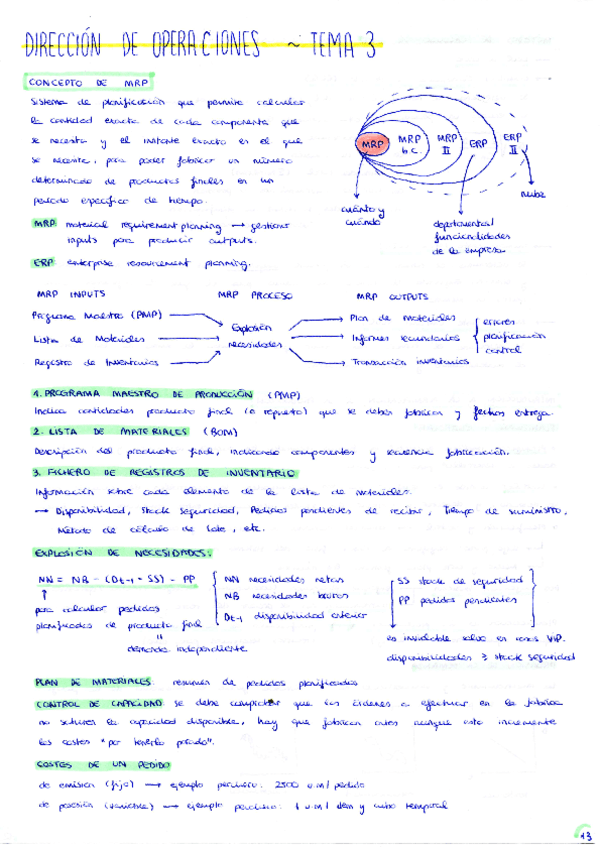 DIRECCIÓN DE OPERACIONES ~ TEMA 3
CONCEPTO DE MRP
Sistema de planificación que permite calcular
la cantidad exacta de cada componente que
se necesita y el instante exacto en el que
se necesita, para poder fabricar un número
determinado de productos finales en un
periodo específico de tiempo.
MRP
MRP b.c
MRP II
ERP
ERP II
cuánto y cuándo
departamental funcionalidades de la empresa
nube
MRP material requirement planning → gestionar
inputs para producir outputs.
ERP enterprise resourcement planning.
MRP INPUTS MRP PROCESO MRP OUTPUTS
Programa Maestro (PMP)
Lista de Materiales
Registro de Inventarios
Explosión
necesidades
Plan de Materiales
Informes secundarios
Transacción inventarios
errores
planificación
control
1. PROGRAMA MAESTRO DE PRODUCCIÓN (PMP)
Indica cantidades producto final (o repuesto) que se deben fabricar y fechas entrega.
2. LISTA DE MATERIALES (BOM)
Descripción del producto final, indicando componentes y secuencia fabricación.
3. FICHERO DE REGISTROS DE INVENTARIO
Información sobre cada elemento de la lista de materiales.
→ Disponibilidad, Stock Seguridad, Pedidos pendientes de recibir, Tiempo de suministro,
Método de cálculo de lote, etc.
EXPLOSIÓN DE NECESIDADES.
NN = NB - (Dt-1 - SS) - PP
para calcular pedidos
planificados de producto final
demanda independiente
NN necesidades netas
NB necesidades brutas
Dt-1 disponibilidad anterior
SS stock de seguridad
PP pedidos pendientes
es inviolable salvo en casos VIP.
disponibilidades ≥ stock seguridad
PLAN DE MATERIALES: resumen de pedidos planificados
CONTROL DE CAPACIDAD: se debe comprobar que las órdenes a efectuar en la fábrica
no saturen la capacidad disponible, hay que fabricar antes aunque esto incremente
los costes "por tenerlo parado".
COSTES DE UN PEDIDO
de emisión (fijo) → ejemplo perchero: 2500 u.m/pedido
de posesión (variable) → ejemplo perchero: 1 u.m/ ítem y unidad temporal
13